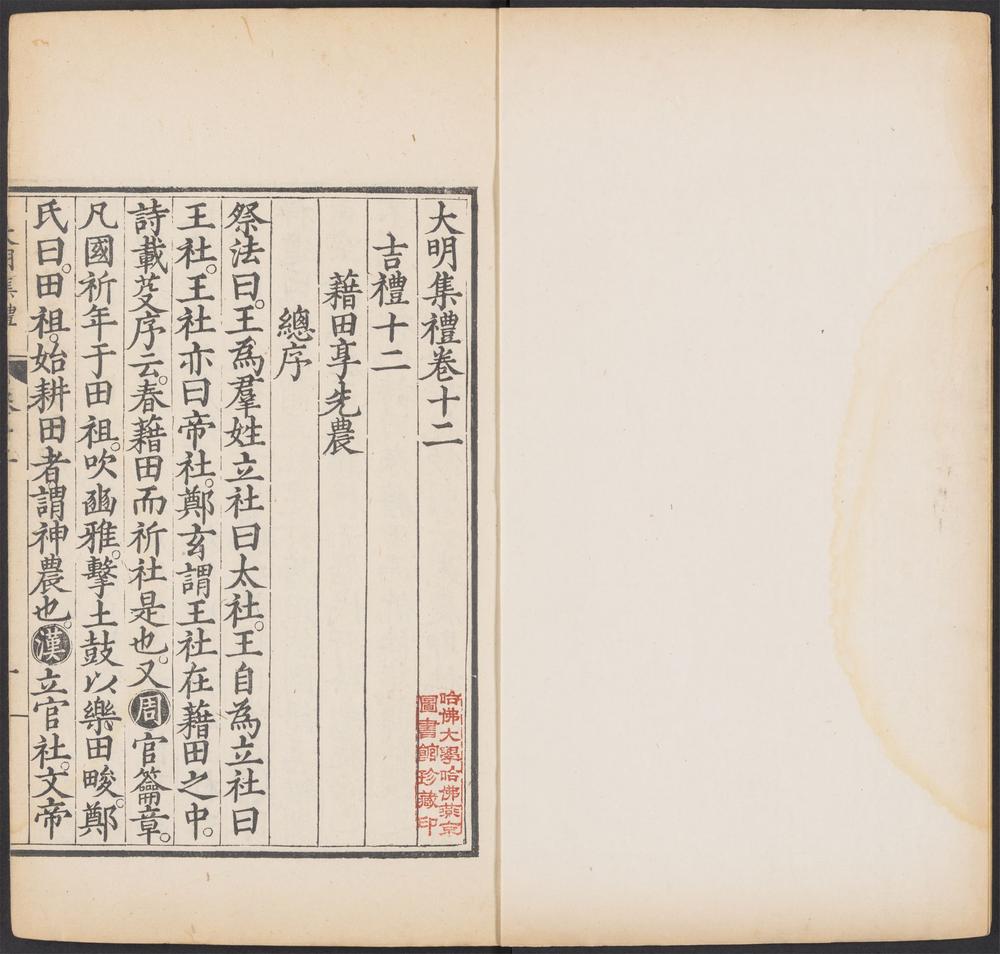 大明集禮卷十二
吉禮十二
藉田享先農
總序
祭法曰。王為羣姓立社曰太社。王自為立社曰
王社。王社亦曰帝社。鄭玄謂王社在藉田之中。
詩載芟序云。春藉田而祈社是也。又周官籥章。
凡國祈年于田祖。吹豳雅。擊土鼓以樂田畯。鄭
氏曰。田祖。始耕田者謂神農也。漢立官社。文帝
哈佛大學哈佛燕京
圖書館珍藏印